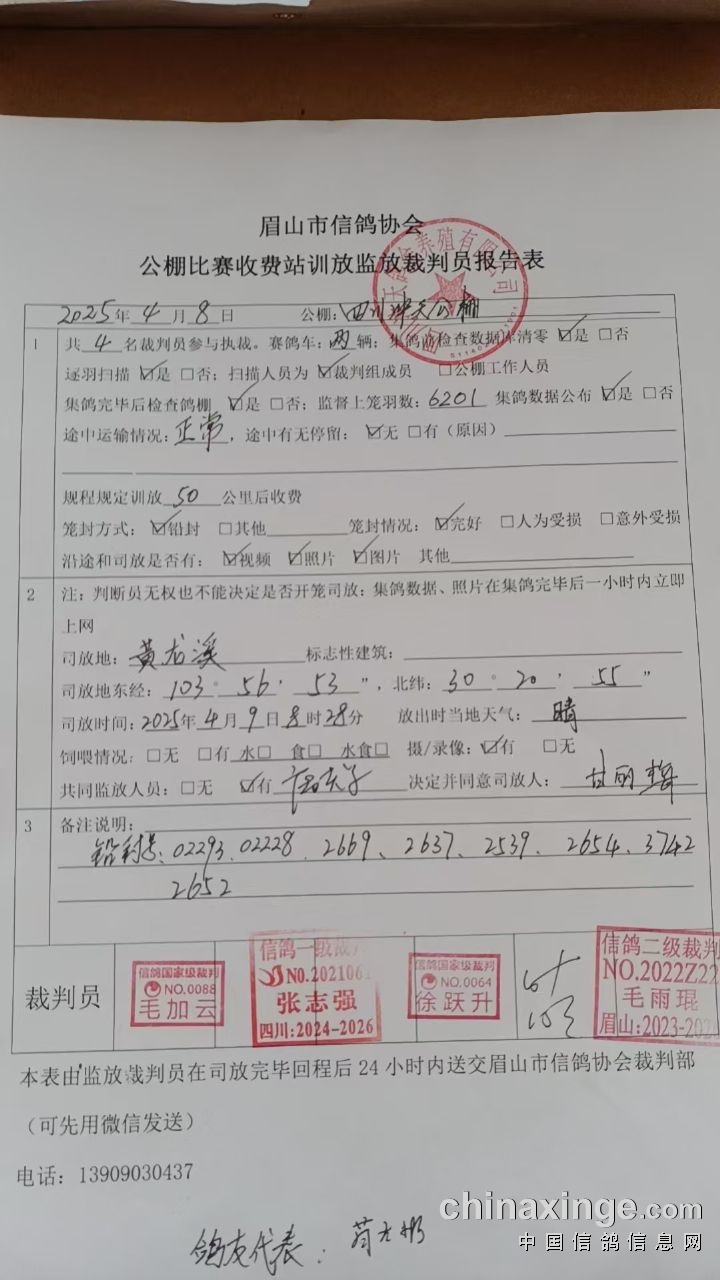 眉山市信鸽协会
公棚比赛收费站训放监放裁判员报告表
2025年4月8日 公棚：四川 天公棚
1 共4名裁判员参与执裁。赛鸽车：两辆；集鸽前检查数据库清零 ☑是 □否
逐羽扫描 ☑是 □否；扫描人员为 ☑裁判组成员 □公棚工作人员
集鸽完毕后检查鸽棚 ☑是 □否；监督上笼羽数：6201 集鸽数据公布 ☑是 □否
途中运输情况：正常，途中有无停留：☑无 □有（原因）
规程规定训放50公里后收费
笼封方式：☑铅封 □其他 笼封情况：☑完好 □人为受损 □意外受损
沿途和司放是否有：☑视频 ☑照片 ☑图片 其他
2 注：判断员无权也不能决定是否开笼司放；集鸽数据、照片在集鸽完毕后一小时内立即
上网
司放地：黄龙溪 标志性建筑：
司放地东经：103° 56′ 53″，北纬：30° 20′ 55″
司放时间：2025年4月9日8时28分 放出时当地天气：晴
饲喂情况：□无 □有 水□ 食□ 水食□ 摄/录像：☑有 □无
共同监放人员：□无 ☑有 决定并同意司放人：甘丽
3 备注说明：
铅封号：02293、02228、2669、2637、2539、2654、3742
2652
裁判员
信鸽国家级裁判
NO.0088
毛加云
信鸽一级裁判
NO.202106
张志强
四川：2024-2026
信鸽国家级裁判
NO.0064
徐跃升
信鸽二级裁判
NO.2022Z22
毛雨琨
眉山：2023-202
本表由监放裁判员在司放完毕回程后24小时内送交眉山市信鸽协会裁判部
（可先用微信发送）
电话：13909030437
鸽友代表：
chinaxinge.com
中国信鸽信息网